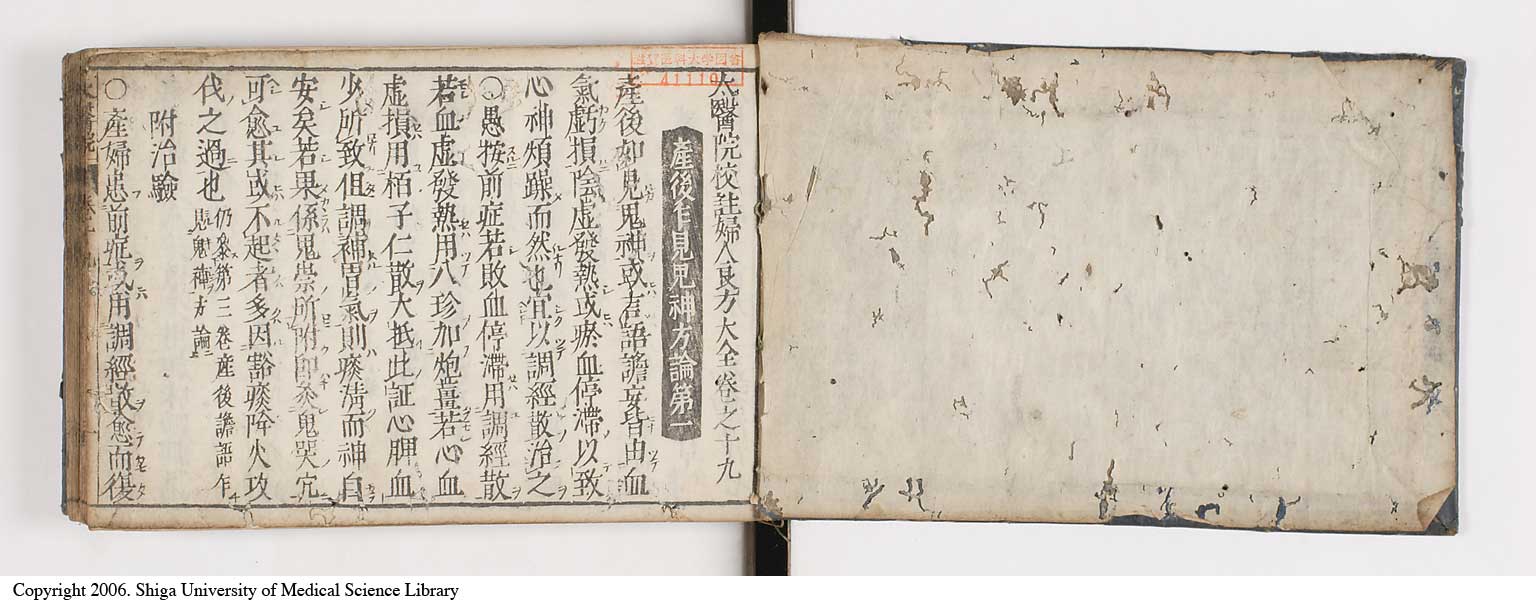 太醫院校註婦人良方大全卷之十九
產後乍見鬼神方論第一
產後如見鬼神或言語譫妄皆由血
氣虧損陰虛發熱或瘀血停滯以致
心神煩躁而然也宜以調經散治之
○愚按前症若敗血停滯用調經散
若血虛發熱用八珍加炮薑若心血
虛損用栢子仁散大抵此証心脾血
少所致但調補胃氣則痰淸而神自
安矣若果係鬼祟所附卽灸鬼哭穴
可愈其或不起者多因豁痰降火攻
伐之過也
仍叅第三卷產後譫語乍
見鬼神方論
附治驗
○產婦患前症或用調經散愈而復
41119
Copyright 2006. Shiga University of Medical Science Library